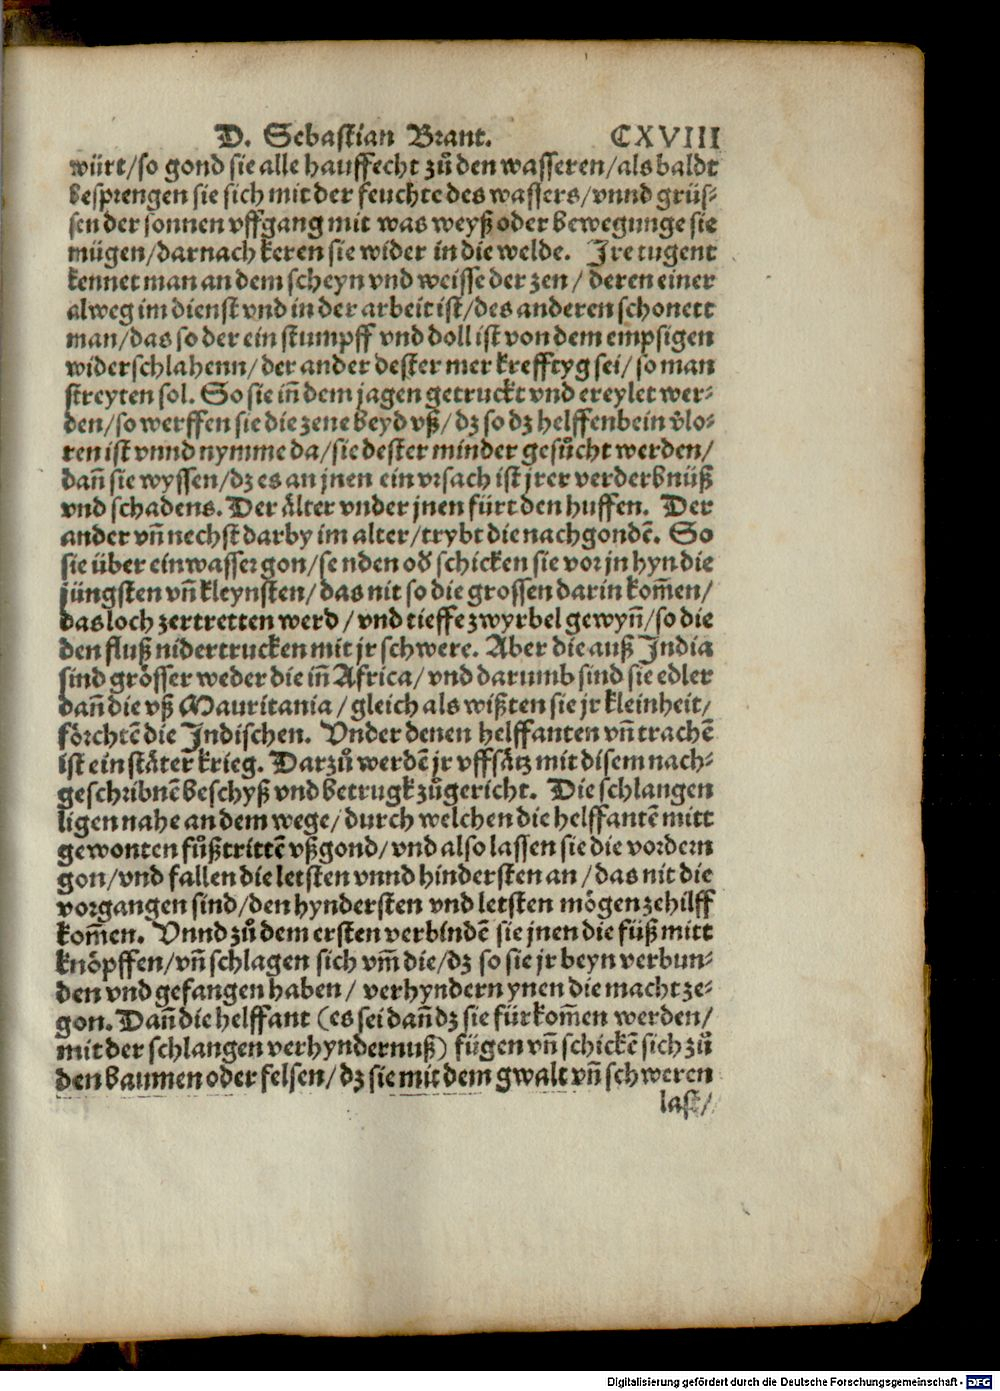 D. Sebastian Brant. CXVIII
würt/so gond sie alle hauffecht zů den wasseren/als baldt
besprengen sie sich mit der feuchte des wassers/vnnd grüs-
sen der sonnen vffgang mit was weyß oder bewegunge sie
mügen/darnach keren sie wider in die welde. Jre tugent
kennet man an dem scheyn vnd weisse der zen/ deren einer
alweg im dienst vnd in der arbeit ist/des anderen schonett
man/das so der ein stumpff vnd doll ist von dem empsigen
widerschlahenn/der ander dester mer krefftyg sei/so man
streyten sol. So sie iñ dem jagen getruckt vnd ereylet wer-
den/so werffen sie die zene beyd vß/dz so dz helffenbein v̉lo-
ren ist vnnd nymme da/sie dester minder gesůcht werden/
dañ sie wyssen/dz es an jnen ein vrsach ist jrer verderbnüß
vnd schadens. Der ålter vnder jnen fürt den huffen. Der
ander vñ nechst darby im alter/trybt die nachgondē. So
sie über ein wasser gon/senden oď schicken sie vor jn hyn die
jüngsten vñ kleynsten/das nit so die grossen darin kom̃en/
das loch zertretten werd/vnd tieffe zwyrbel gewyñ/so die
den fluß nidertrucken mit jr schwere. Aber die auß India
sind grösser weder die iñ Africa/vnd darumb sind sie edler
dañ die vß Mauritania/gleich als wißten sie jr kleinheit/
förchtē die Indischen. Vnder denen helffanten vñ trachē
ist ein ståter krieg. Darzů werdē jr vffsåtz mit disem nach-
geschribnē beschyß vnd betrugk zůgericht. Die schlangen
ligen nahe an dem wege/durch welchen die helffantē mitt
gewonten fůßtrittē vßgond/vnd also lassen sie die vordern
gon/vnd fallen die letsten vnnd hindersten an/das nit die
vorgangen sind/den hyndersten vnd letsten mögen ze hilff
kom̃en. Vnnd zů dem ersten verbindē sie jnen die füß mitt
knöpffen/vñ schlagen sich vm̃ die/dz so sie jr beyn verbun-
den vnd gefangen haben/ verhyndern ynen die macht ze-
gon. Dañ die helffant (es sei dañ dz sie fürkom̃en werden/
mit der schlangen verhyndernuß) fügen vñ schickē sich zů
den baumen oder felsen/dz sie mit dem gwalt vñ schweren
last/
Digitalisierung gefördert durch die Deutsche Forschungsgemeinschaft - DFG